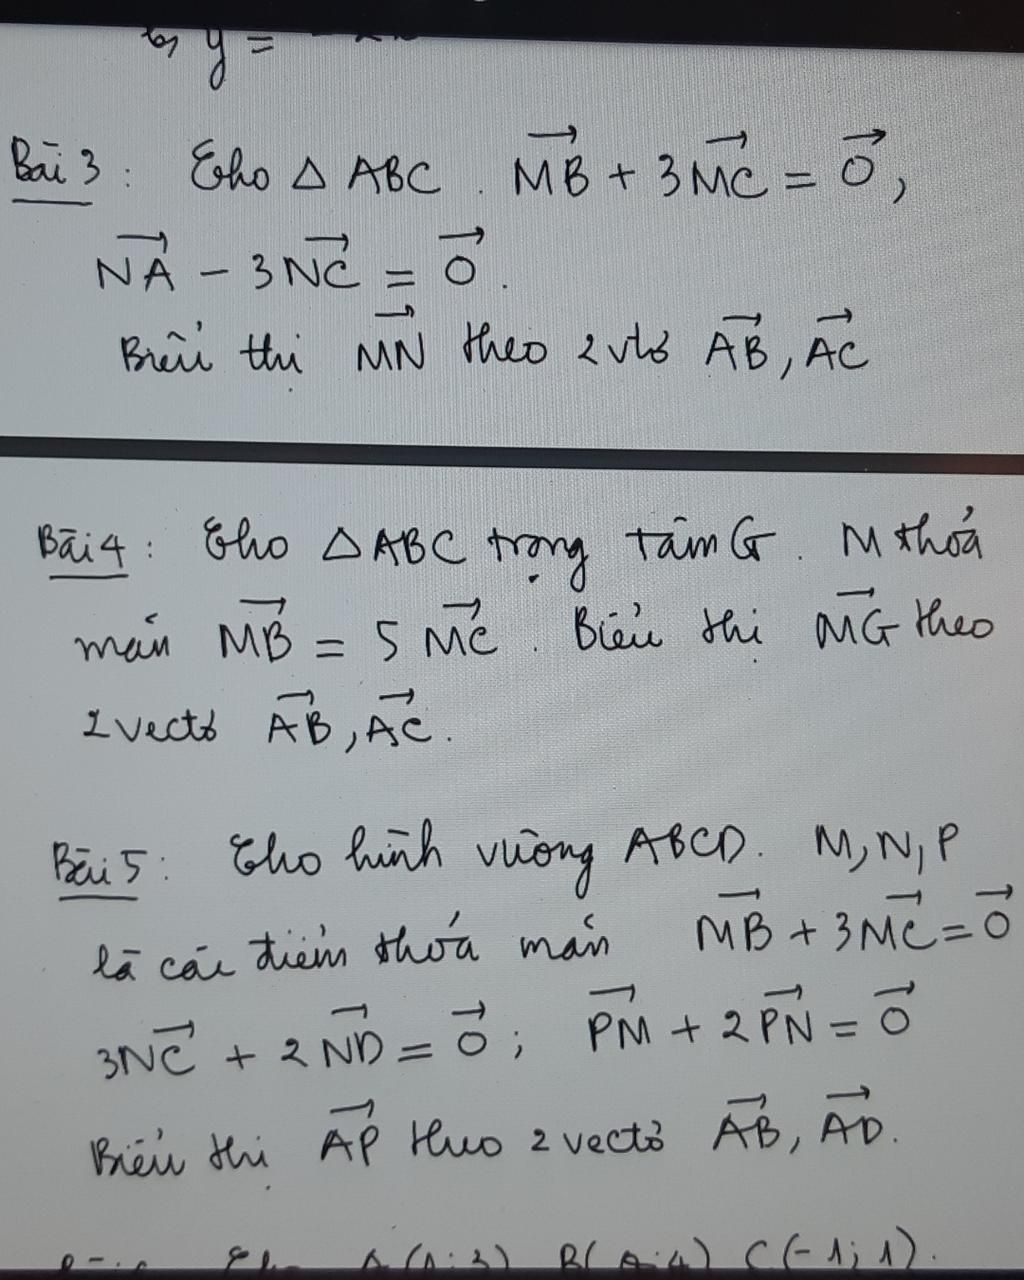 b, y =
Bài 3 : Cho △ ABC . $\overrightarrow{MB} + 3\overrightarrow{MC} = \overrightarrow{0}$,
$\overrightarrow{NA} - 3\overrightarrow{NC} = \overrightarrow{0}$.
Biểu thị $\overrightarrow{MN}$ theo 2 vtơ $\overrightarrow{AB}, \overrightarrow{AC}$
Bài 4 : Cho △ ABC trọng tâm G . M thoả
mãn $\overrightarrow{MB} = 5\overrightarrow{MC}$ . Biểu thị $\overrightarrow{MG}$ theo
2 vectơ $\overrightarrow{AB}, \overrightarrow{AC}$.
Bài 5 : Cho hình vuông ABCD. M, N, P
là các điểm thoả mãn $\overrightarrow{MB} + 3\overrightarrow{MC} = \overrightarrow{0}$
$3\overrightarrow{NC} + 2\overrightarrow{ND} = \overrightarrow{0}$ ; $\overrightarrow{PM} + 2\overrightarrow{PN} = \overrightarrow{0}$
Biểu thị $\overrightarrow{AP}$ theo 2 vectơ $\overrightarrow{AB}, \overrightarrow{AD}$.
C(-1; 1).